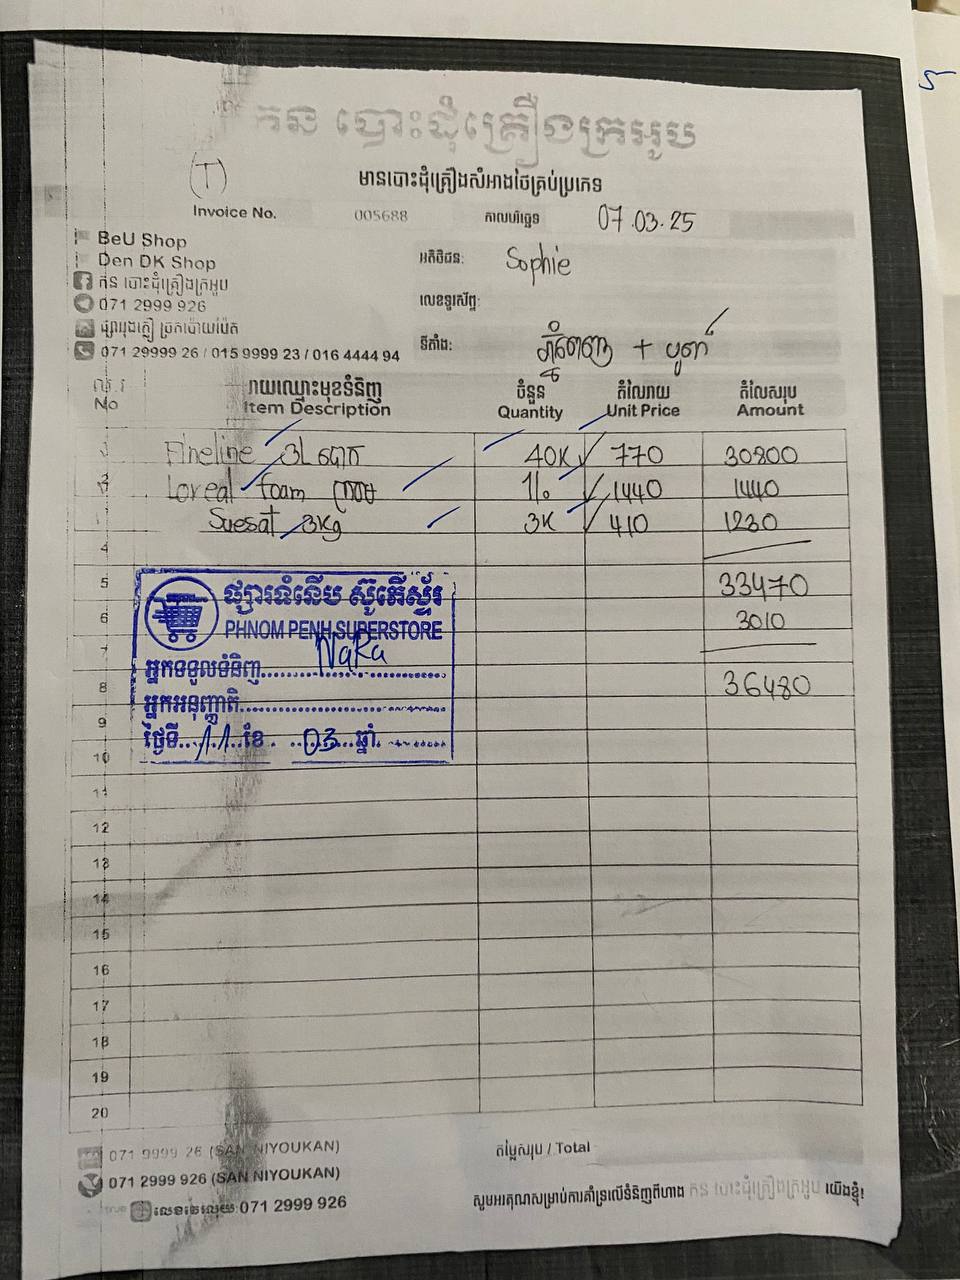 កន បោះដុំគ្រឿងក្រអូប
(T)
មានបោះដុំគ្រឿងសំអាងថៃគ្រប់ប្រភេទ
Invoice No. 005688 កាលបរិច្ឆេទ 07.03.25
BeU Shop
Den DK Shop
កន បោះដុំគ្រឿងក្រអូប
071 2999 926
071 29999 26 / 015 9999 23 / 016 4444 94
អតិថិជន: Sophie
លេខទូរស័ព្ទ:
ទីតាំង: ភ្នំពេញ +
ល.រ រាយឈ្មោះមុខទំនិញ ចំនួន តំលៃរាយ តំលៃសរុប
No Item Description Quantity Unit Price Amount
1 Fineline 3L 40K 770 30800
2 Loreal foam 1440 1440
Suesat 3Kg 3K 410 1230
4
5 33470
6 3010
7
8 36480
9
10
11
12
13
14
15
16
17
18
19
20
ផ្សារទំនើប ស៊ូភើស្ទ័រ
PHNOM PENH SUPERSTORE
អ្នកទទួលទំនិញ NaRa
អ្នកអនុញ្ញាតិ
ថ្ងៃទី 11 ខែ 03 ឆ្នាំ
071 9999 26 (SAN NIYOUKAN)
071 2999 926 (SAN NIYOUKAN)
071 2999 926
តម្លៃសរុប / Total
សូមអរគុណសម្រាប់ការគាំទ្រលើទំនិញពីហាង កន បោះដុំគ្រឿងក្រអូប យើងខ្ញុំ!
5